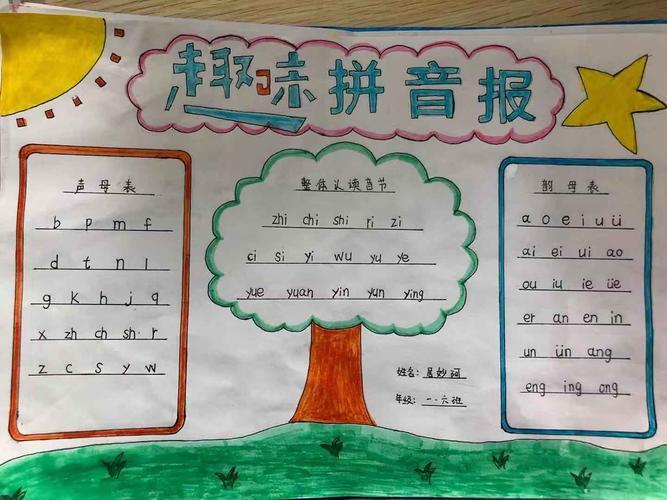 趣味拼音报
声母表
b p m f
d t n l
g k h j q
x zh ch sh r
z c s y w
整体认读音节
zhi chi shi ri zi
ci si yi wu yu ye
yue yuan yin yun ying
韵母表
a o e i u ü
ai ei ui ao
ou iu ie üe
er an en in
un ün ang
eng ing ong
姓名: 居妙珂
年级: 一·六班